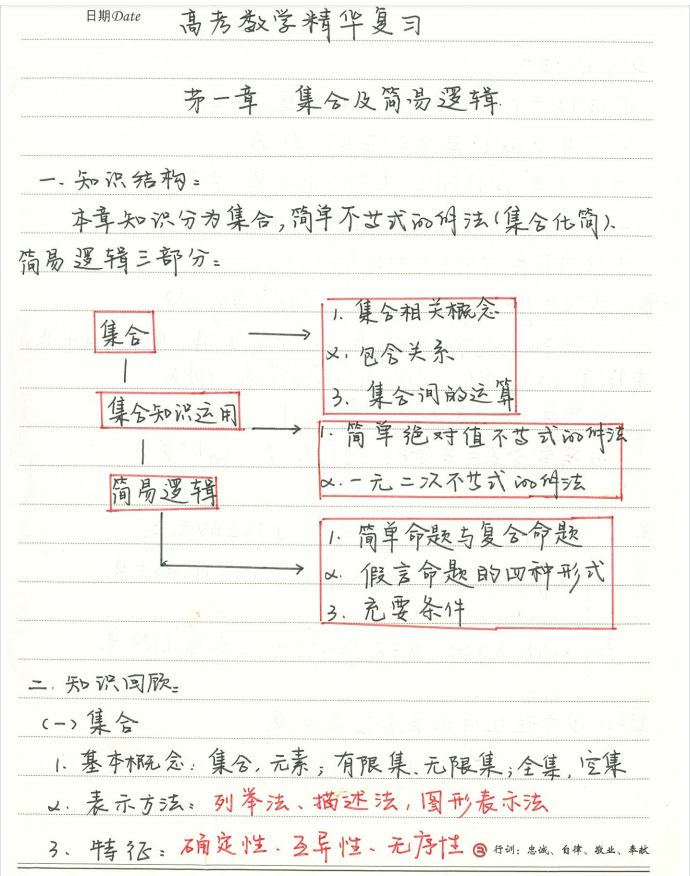 日期Date 高考数学精华复习
第一章 集合及简易逻辑.
一. 知识结构:
本章知识分为集合,简单不等式的解法(集合化简)、
简易逻辑三部分:
集合
1. 集合相关概念
2. 包含关系
3. 集合间的运算
集合知识运用
1. 简单绝对值不等式的解法
2. 一元二次不等式的解法
简易逻辑
1. 简单命题与复合命题
2. 假言命题的四种形式
3. 充要条件
二. 知识回顾:
(一) 集合
1. 基本概念: 集合, 元素; 有限集、无限集; 全集, 空集
2. 表示方法: 列举法、描述法, 图形表示法
3. 特征: 确定性、互异性、无序性
行训: 忠诚、自律、敬业、奉献